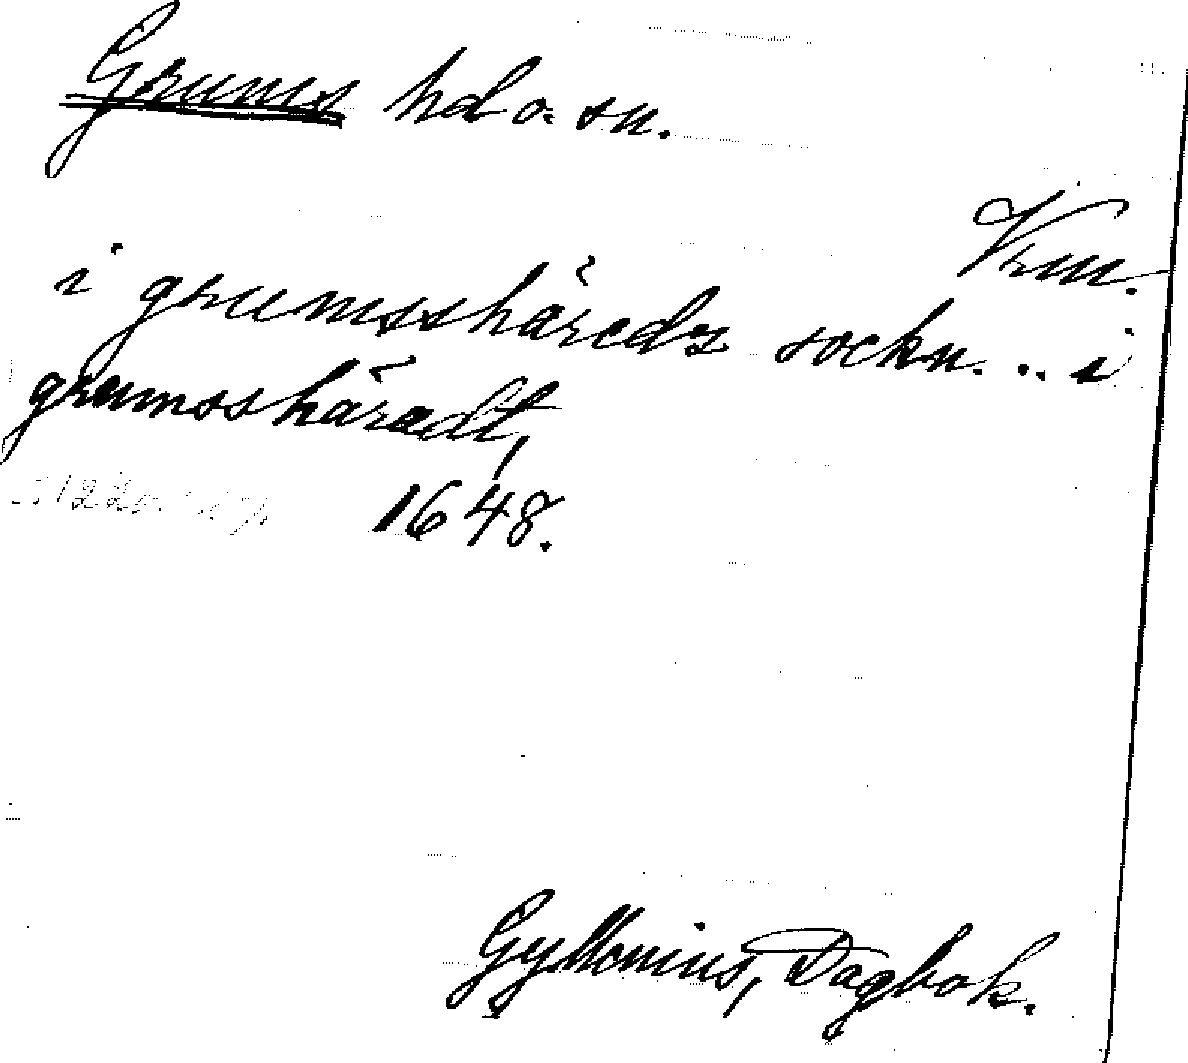 Grums hd o. sn.
Vrm.
i grumsshäredz sockn... i
grumsshäradt,
1648.
Gyllenius, Dagbok.